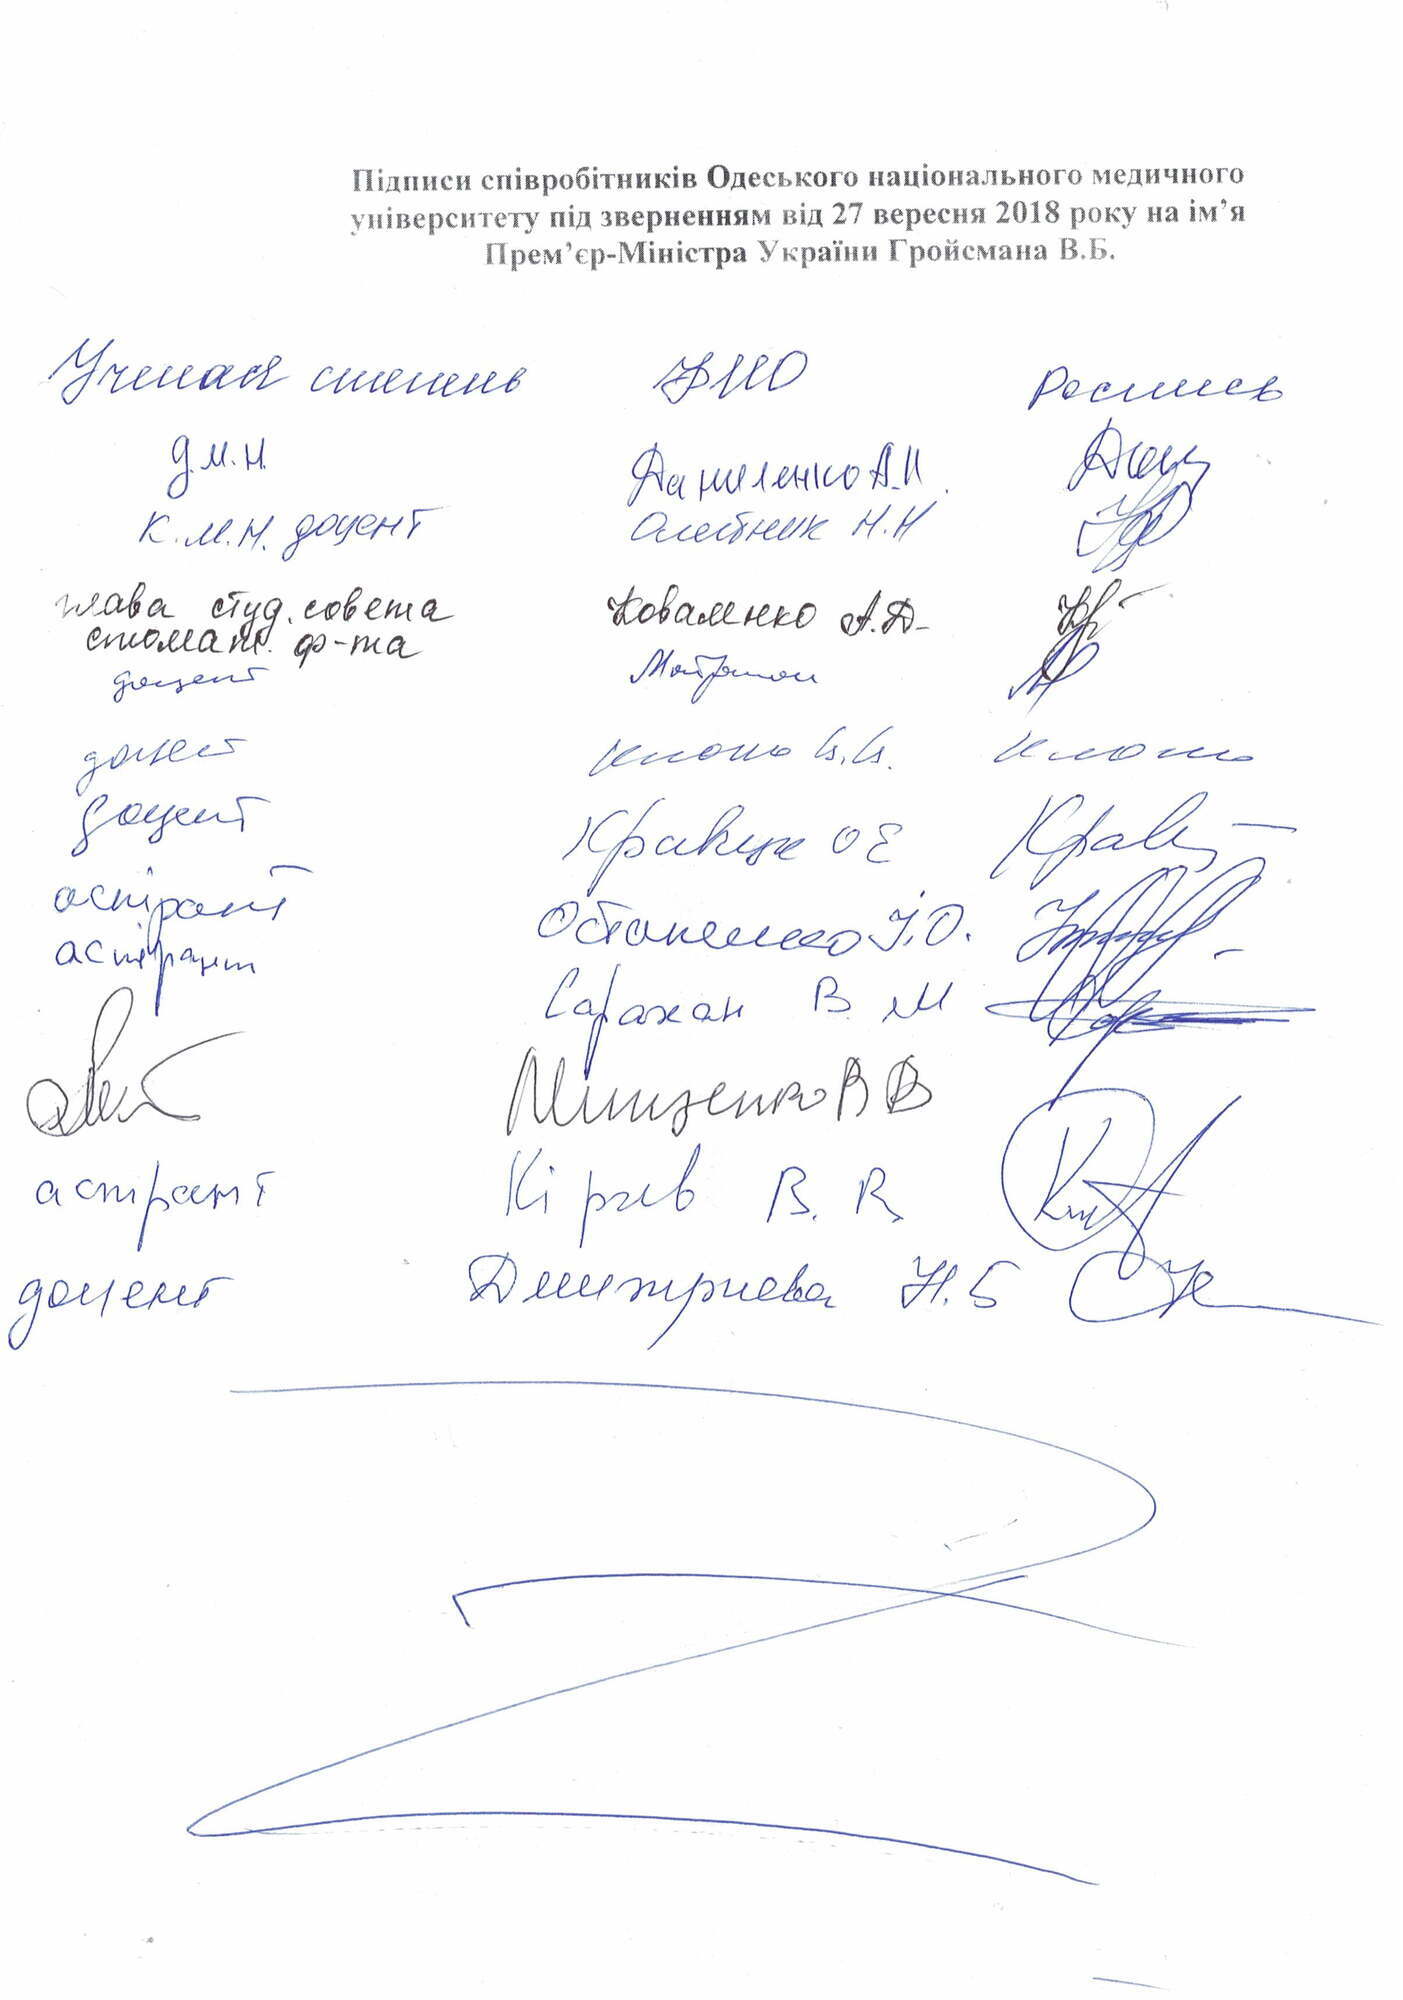 Підписи співробітників Одеського національного медичного
університету під зверненням від 27 вересня 2018 року на ім’я
Прем’єр-Міністра України Гройсмана В.Б.
Ученая степень ФИО Роспись
д.м.н. Даниленко А.И.
к.м.н. доцент Олейник Н.Н
глава студ. совета Коваленко А.Д.
стомат. ф-та
доцент
доцент
доцент Кравцук О Е
аспірант Остапенко І.О.
аспірант Сарахан В. М
Мищенко В В
аспірант Кіров В. В.
доцент Дмитриева Н.Б